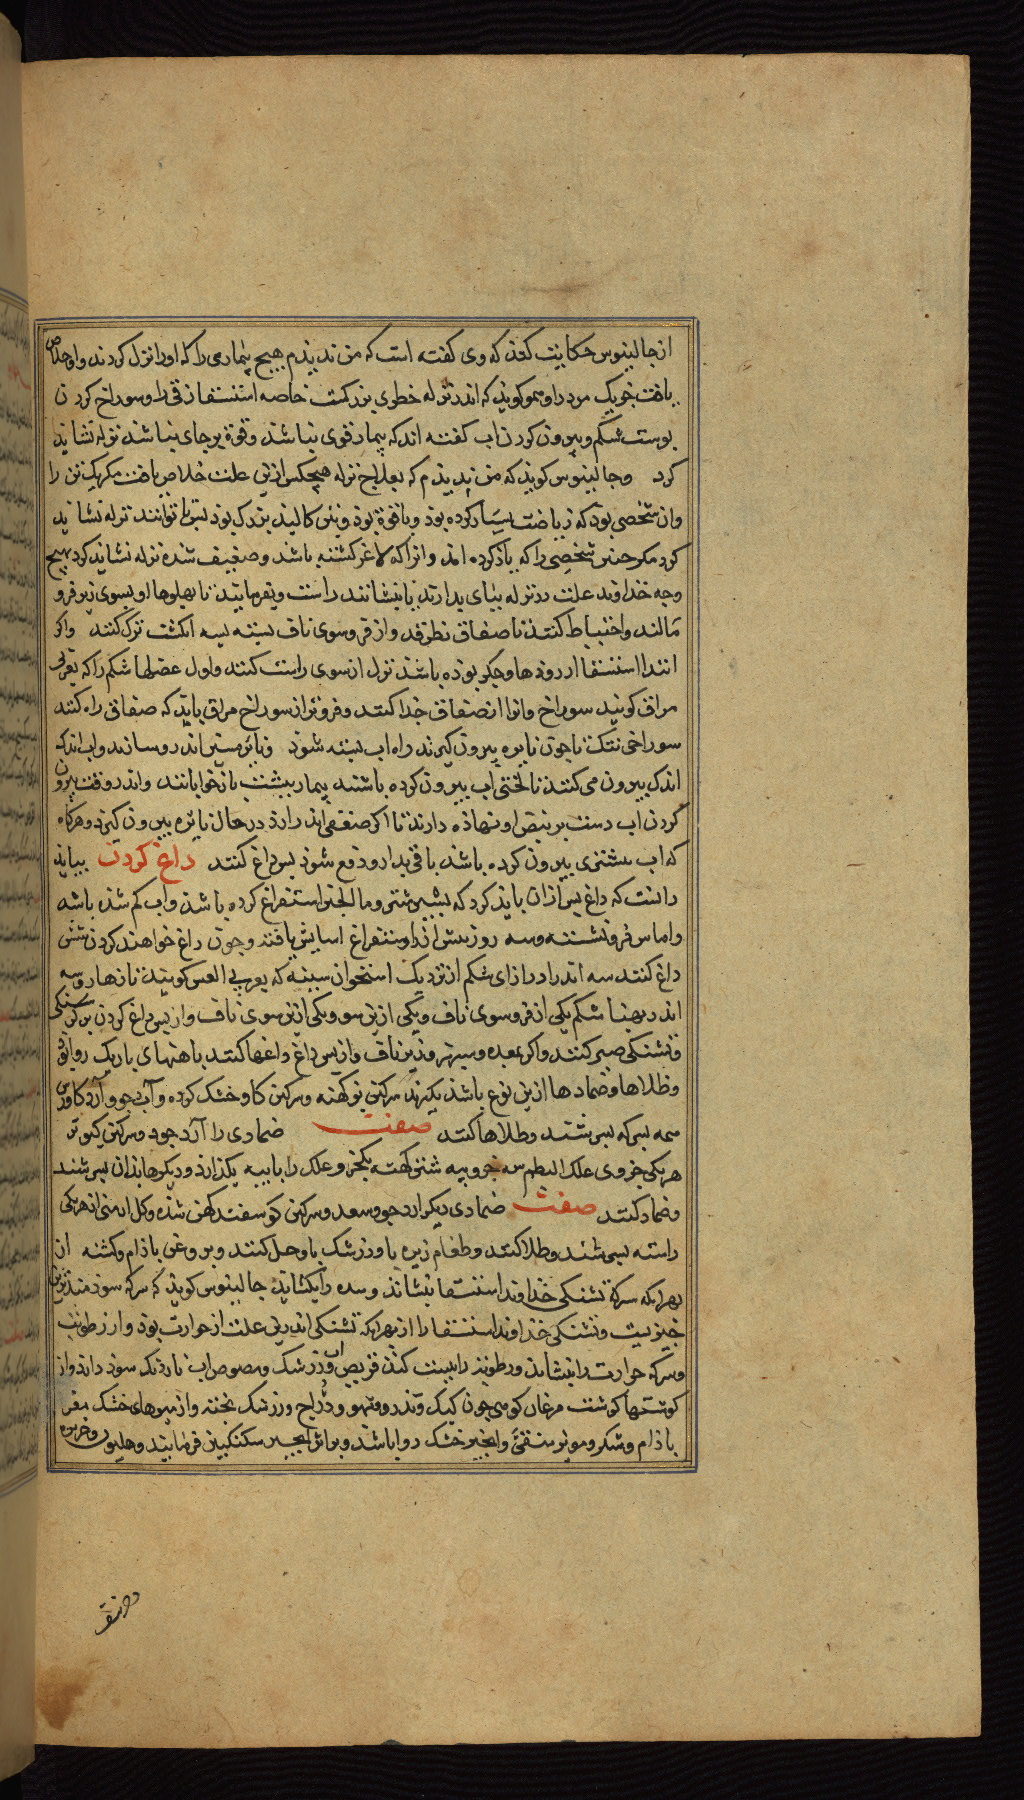 از جالینوس حکایت کنند که وی گفته است که من ندیدم هیچ بیماری را که او را نزل کردند و او خلاص
یافت جز یک مرد را و همو کوید که اندر نزله خطری بزرکست خاصه استسقاء زقی را و سوراخ کردن
پوست شکم و بیرون کردن اب کفته اند که بیمار قوی نباشد و قوة بر جای نباشد نزله نشاید
کرد و جالینوس کوید که من ندیدم که بعلاج نزله هیچکس ازین علت خلاص یافت مکر یک تن را
وان شخصی بود که ریاضت بسیار کرده بود و با قوة بود و تنی کالبد بزرک بود پس تا توانند نزله نشاید
کرد مکر چنین شخصی را که یاد کرده اند وانرا که لاغر کشته باشد وضعیف شده نزله نشاید کرد بهیچ
وجه خداوند علت را نزله بپای بدارند یا بنشانند راست و بفرمایند تا پهلوها او بسوی زیر فرو
مالند و احتیاط کنند تا صفاق نطرقد و از فروسوی ناف بسته بسه انکشت ترک کنند واکر
ابتدا استسقا از رودها و جکر بوده باشد نزل از سوی راست کنند و اول عضلها شکم را که بعربی
مراق کویند سوراخ وانرا از صفاق جدا کنند و فروتر از سوراخ مراق باید که صفاق راه کنند
سوراخی تنک تا چون نایره بیرون کیرند راه اب بسته شود و نایزه مسین اندرو سازند و اب اندک
اندک بیرون می کنند تا لختی اب بیرون کرده باشند بیمار بپشت باز خوابانند و اندر وقت بیرون
کردن اب دست بر نبض او نهاده دارند تا اکر ضعفی اید در حال نایزه بیرون کیرند و هرکاه
که اب بیشتری بیرون کرده باشد باقی بدارو دفع شود پس داغ کنند داغ کردن بباید
دانست که داغ پس ازان باید کرد که بیشترین استفراغ کرده باشد و اب کم شده باشد
و اماس فرو نشسته و سه روز پیش از داغ استفراغ اسایش یافته و چون داغ خواهند کردن شش
داغ کنند سه اندر درازای شکم از نزدیک استخوان سینه که بعربی القس کویند تا زهار و سه
اندر پهنا شکم یکی از فروسوی ناف و یکی ازین سو و یکی ازین سوی ناف و از پس داغ کردن بر کرسنکی
و تشنکی صبر کنند و اکر بمعده و سپرز و زیر ناف و از پس داغ داغها کنند باهنهای باریک روا بود
و طلاها و ضمادها ازین نوع باشد بکیرند سرکین بز کهنه و سرکین کاو خشک کرده و آب جو و آرد کاورس
همه بسرکه بسرشند و طلاها کنند صفت ضمادی را آرد جود و سرکین کبوتر
هر یکی جزوی علک البطم سه جزو پیه شش کهنه یکجزو علک را با پیه بکدازند و دیکرها بدان بسرشند
و ضماد کنند صفت ضمادی دیکر آرد جو و سعد و سرکین کوسفند کهن شده و کل ارمنی از هر یکی
راسته بسرشند و طلا کنند و طعام زیره با و زرشک با و حل کنند و بروغن بادام و کشته ان
بهر آنکه سرکه تشنکی خداوند استسقا بنشاند و سده را بکشاید جالینوس کوید که سرکه سودمندترین
چیزیست و تشنکی خداوند استسقا را از بهر آنکه تشنکی اندرین علت از حرارت بود و از رطوبت
و سرکه حرارت را بنشاند و رطوبت را ببست کند قریص و زرشک و مصوص اب ناردنک سود دارد و از
کوشتها کوشت مرغان کوهی چون کبک و تذرو و تیهو و دراج و زرشک پخته و از میوهای خشک مغز
بادام و شکر و مویز منقی و انجیر خشک روا باشد و بر اثر انجیر سکنکبین فرمایند و حلیون و خربوزه